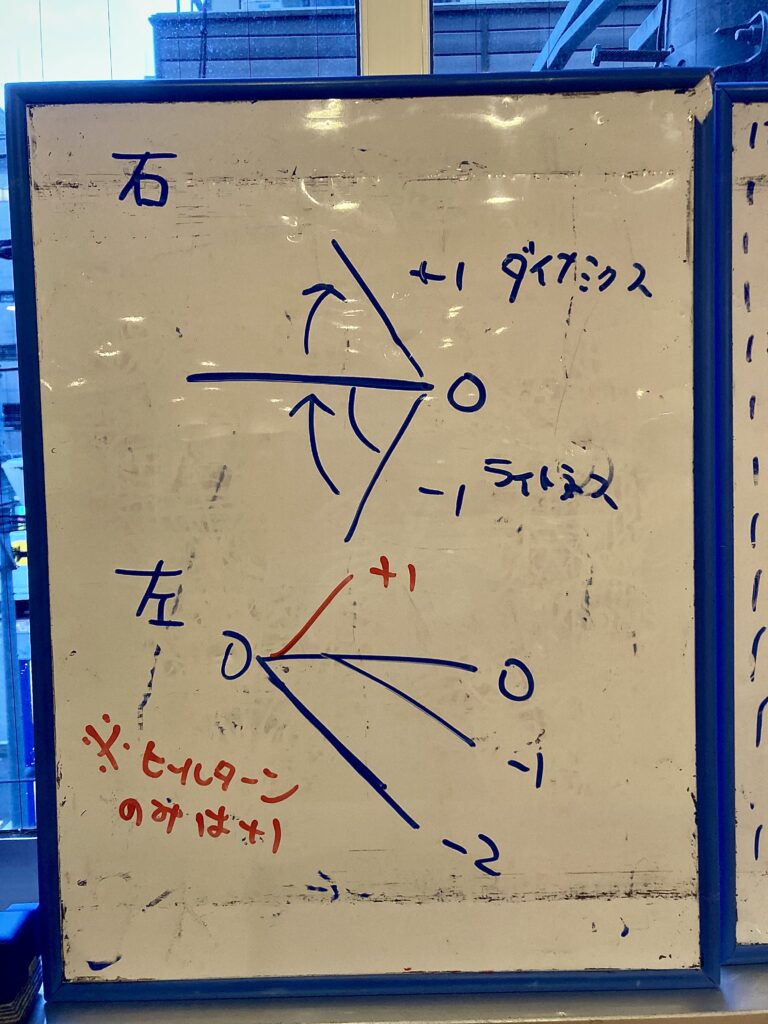 右
+1 ダイナミクス
0
-1 ライトネス
左
+1
0
0
-1
※ヒールターン
のみは+1
-2